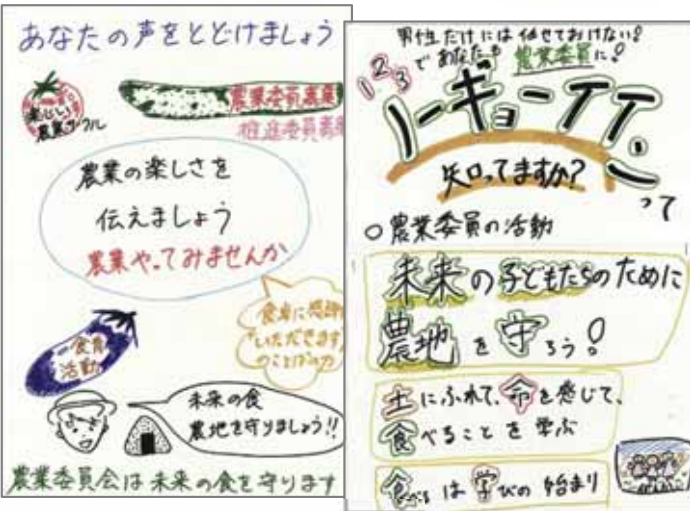 あなたの声をとどけましょう
楽しい
農業サークル
農業委員募集
推進委員募集
農業の楽しさを
伝えましょう
農業やってみませんか
食卓に感謝
"いただきます"
のことばの力
食育
活動
未来の食
農地を守りましょう!!
農業委員会は未来の食を守ります
男性だけには任せておけない!
123で あなたも 農業委員に!
ノーギョーイイン
って
知ってますか?
○農業委員の活動
未来の子どもたちのために
農地を守ろう!
土にふれて、命を感じて、
食べることを学ぶ
食べるは学びの始まり